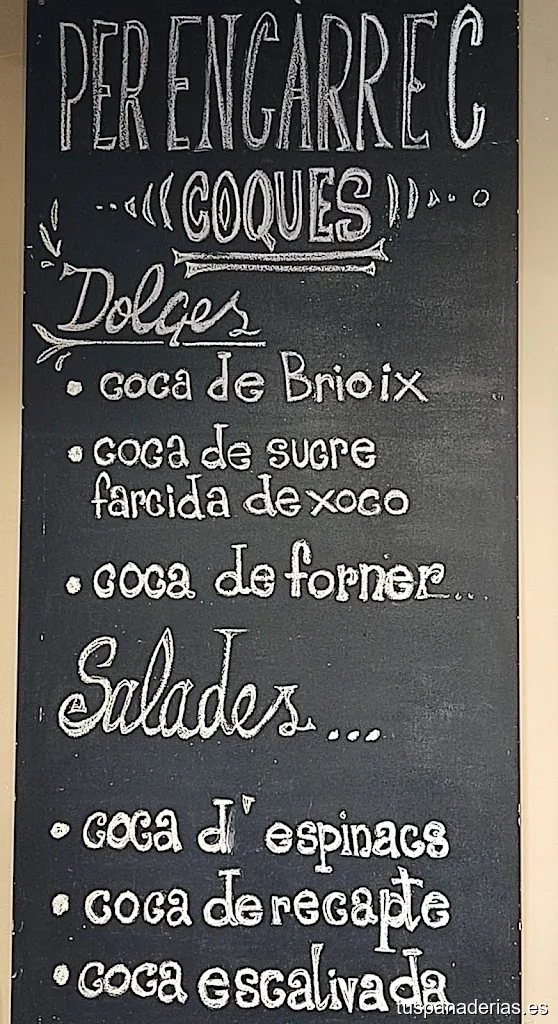 PER ENCÀRREC
COQUES
Dolçes
• coca de Brioix
• coca de sucre
farcida de xoco
• coca de forner...
Salades...
• coca d'espinacs
• coca de recapte
• coca escalivada
tuspanaderias.es